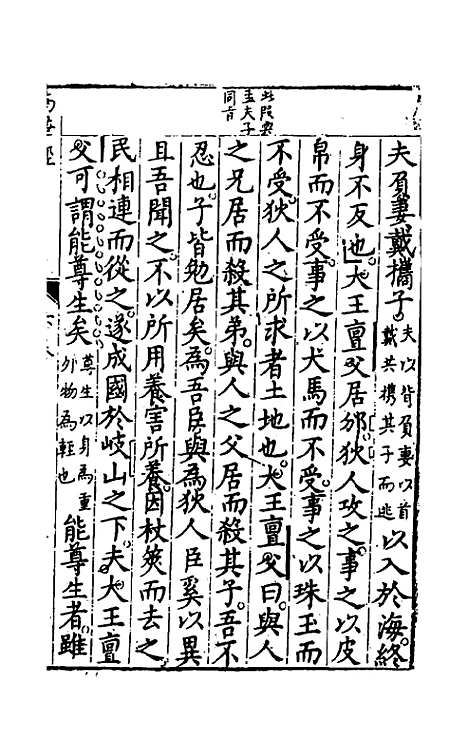 此段與
孟夫子
同旨
夫負妻戴攜子夫以背負妻以首戴共攜其子而逃以入於海終
身不反也大王亶父居邠狄人攻之事之以皮
帛而不受事之以犬馬而不受事之以珠玉而
不受狄人之所求者土地也大王亶父曰與人
之兄居而殺其弟與人之父居而殺其子吾不
忍也子皆勉居矣為吾臣與為狄人臣奚以異
且吾聞之不以所用養害所養因杖筴而去之
民相連而從之遂成國於岐山之下夫大王亶
父可謂能尊生矣尊生以身為重外物為輕也能尊生者雖